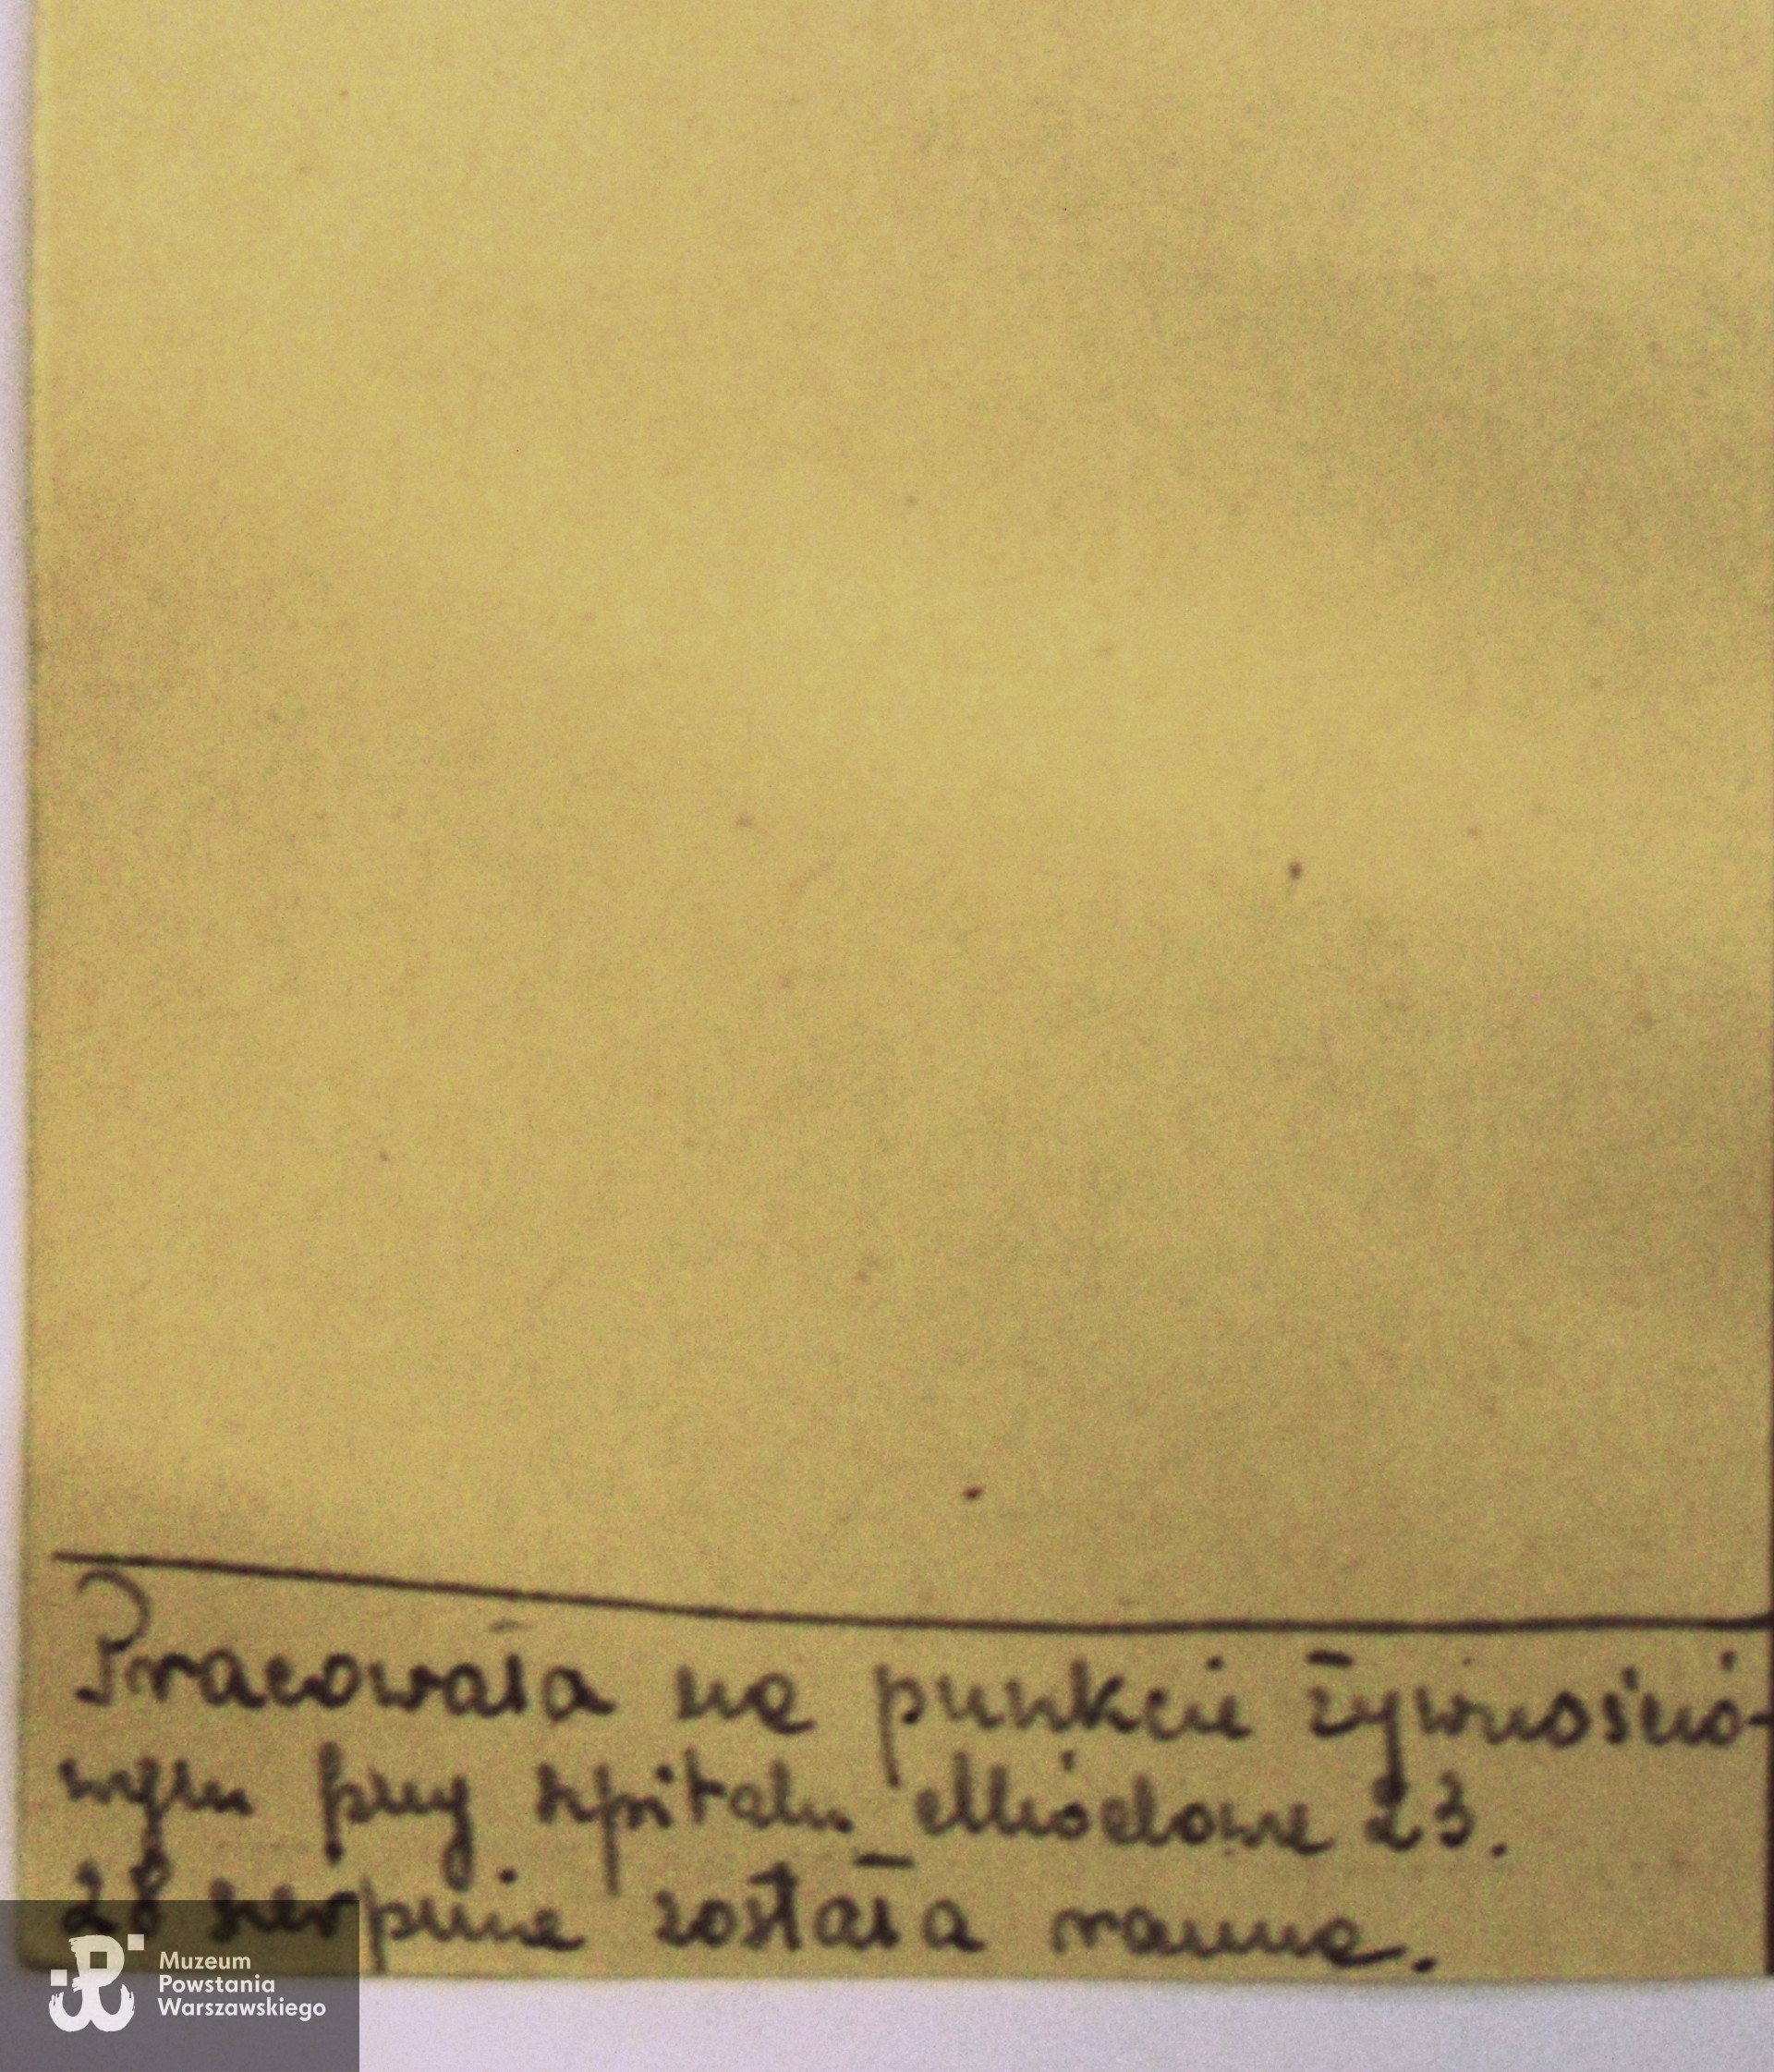 Pracowała na punkcie żywnościo-
wym przy szpitalu Miodowa 23.
28 sierpnia została ranna.
Muzeum
Powstania
Warszawskiego